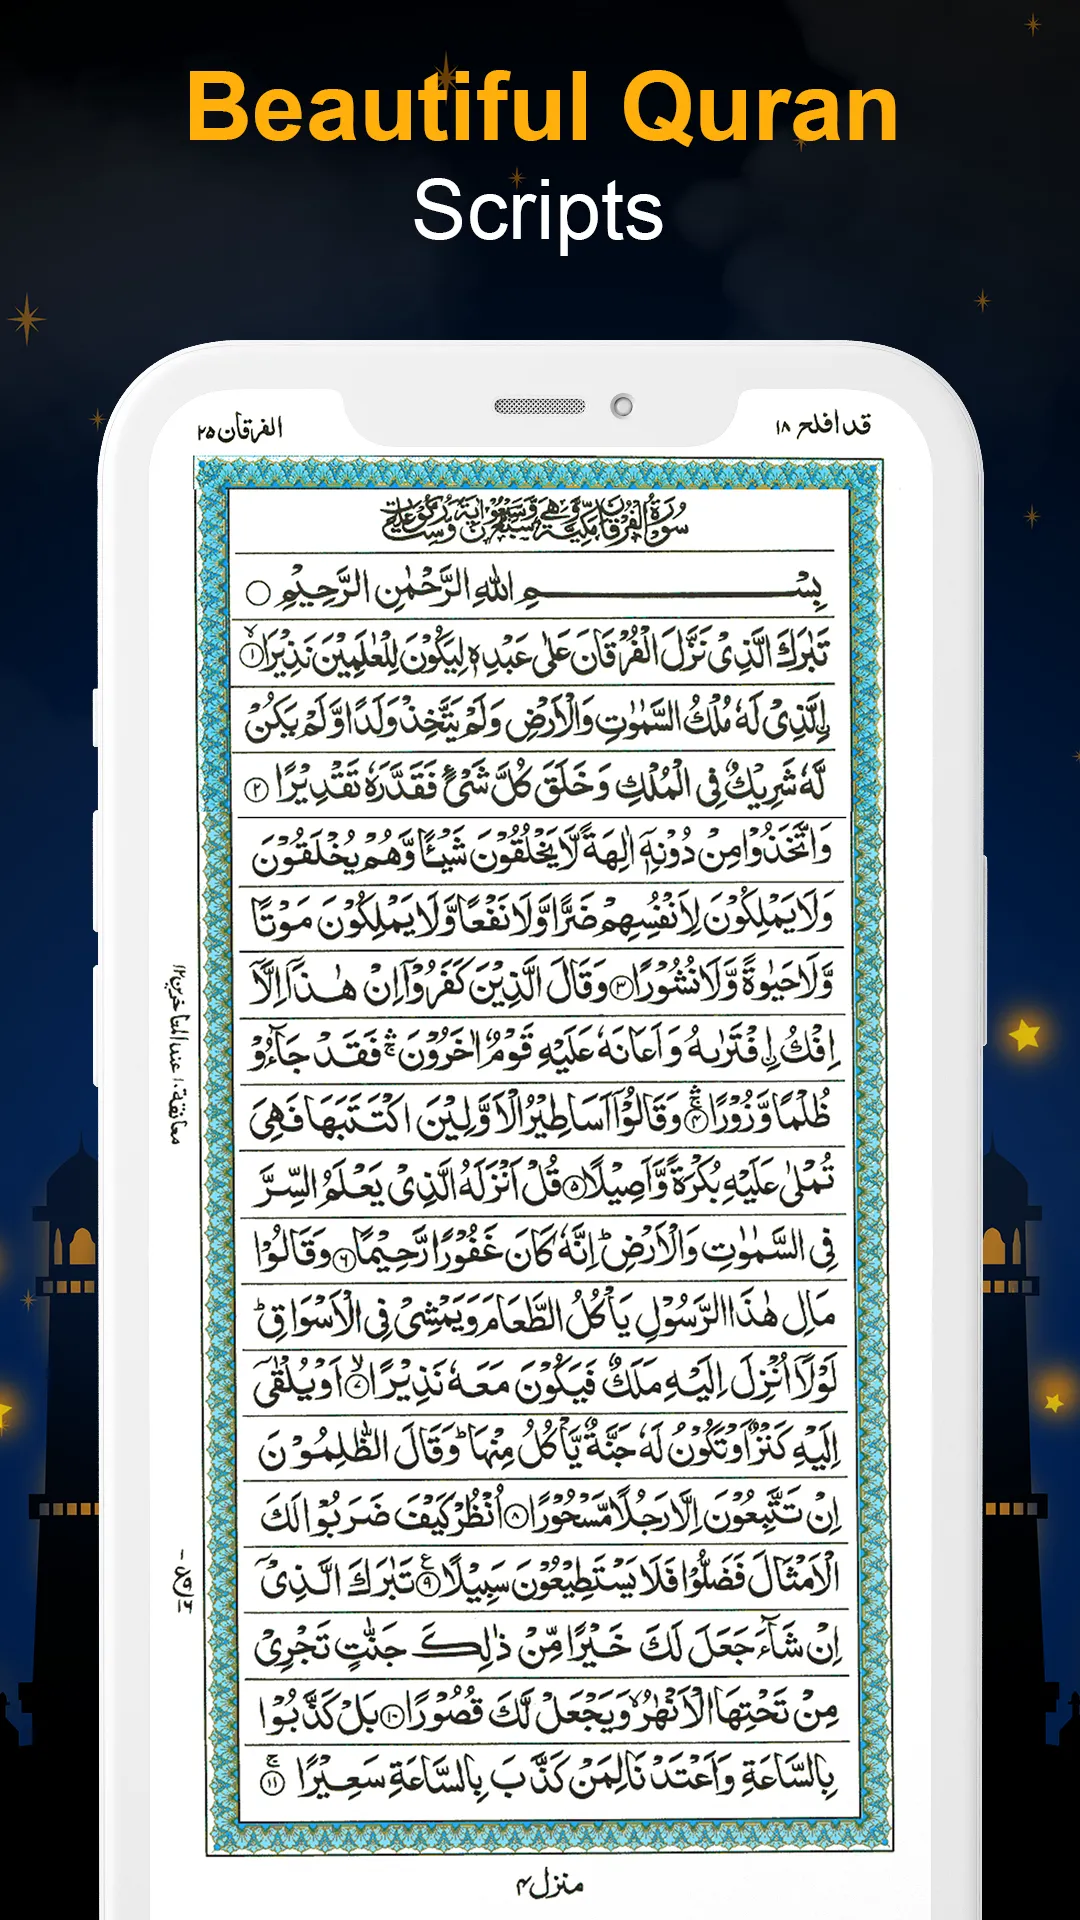 Beautiful Quran
Scripts
قد افلح ١٨
الفرقان ٢٥
سُوْرَةُ الْفُرْقَانِ مَكِّيَّةٌ وَّهِيَ سَبْعٌ وَّسَبْعُوْنَ اٰيَةً وَّسِتُّ رُكُوْعَاتٍ
بِسْمِ اللّٰهِ الرَّحْمٰنِ الرَّحِيْمِ
تَبٰرَكَ الَّذِىْ نَزَّلَ الْفُرْقَانَ عَلٰى عَبْدِهٖ لِيَكُوْنَ لِلْعٰلَمِيْنَ نَذِيْرَاۙ ١
اۨلَّذِىْ لَهٗ مُلْكُ السَّمٰوٰتِ وَالْاَرْضِ وَلَمْ يَتَّخِذْ وَلَدًا وَّلَمْ يَكُنْ
لَّهٗ شَرِيْكٌ فِى الْمُلْكِ وَخَلَقَ كُلَّ شَىْءٍ فَقَدَّرَهٗ تَقْدِيْرًا ٢
وَاتَّخَذُوْا مِنْ دُوْنِهٖٓ اٰلِهَةً لَّا يَخْلُقُوْنَ شَيْـًٔا وَّهُمْ يُخْلَقُوْنَ
وَلَا يَمْلِكُوْنَ لِاَنْفُسِهِمْ ضَرًّا وَّلَا نَفْعًا وَّلَا يَمْلِكُوْنَ مَوْتًا
وَّلَا حَيٰوةً وَّلَا نُشُوْرًا ٣ وَقَالَ الَّذِيْنَ كَفَرُوْٓا اِنْ هٰذَآ اِلَّآ
اِفْكُ اۨفْتَرٰىهُ وَاَعَانَهٗ عَلَيْهِ قَوْمٌ اٰخَرُوْنَ ۛۚ فَقَدْ جَآءُوْ
ظُلْمًا وَّزُوْرًا ۛۚ ٤ وَقَالُوْٓا اَسَاطِيْرُ الْاَوَّلِيْنَ اكْتَتَبَهَا فَهِىَ
تُمْلٰى عَلَيْهِ بُكْرَةً وَّاَصِيْلًا ٥ قُلْ اَنْزَلَهُ الَّذِىْ يَعْلَمُ السِّرَّ
فِى السَّمٰوٰتِ وَالْاَرْضِؕ اِنَّهٗ كَانَ غَفُوْرًا رَّحِيْمًا ٦ وَقَالُوْا
مَالِ هٰذَا الرَّسُوْلِ يَاْكُلُ الطَّعَامَ وَيَمْشِىْ فِى الْاَسْوَاقِؕ
لَوْلَآ اُنْزِلَ اِلَيْهِ مَلَكٌ فَيَكُوْنَ مَعَهٗ نَذِيْرًاۙ ٧ اَوْ يُلْقٰٓى
اِلَيْهِ كَنْزٌ اَوْ تَكُوْنُ لَهٗ جَنَّةٌ يَّاْكُلُ مِنْهَاؕ وَقَالَ الظّٰلِمُوْنَ
اِنْ تَتَّبِعُوْنَ اِلَّا رَجُلًا مَّسْحُوْرًا ٨ اُنْظُرْ كَيْفَ ضَرَبُوْا لَكَ
الْاَمْثَالَ فَضَلُّوْا فَلَا يَسْتَطِيْعُوْنَ سَبِيْلًا ٩ تَبٰرَكَ الَّذِىْٓ
اِنْ شَآءَ جَعَلَ لَكَ خَيْرًا مِّنْ ذٰلِكَ جَنّٰتٍ تَجْرِىْ
مِنْ تَحْتِهَا الْاَنْهٰرُۙ وَيَجْعَلْ لَّكَ قُصُوْرًا ١٠ بَلْ كَذَّبُوْا
بِالسَّاعَةِ وَاَعْتَدْنَا لِمَنْ كَذَّبَ بِالسَّاعَةِ سَعِيْرًاۚ ١١
معانقة ١٠ عند المتاخرين ١٢
منزل ٤